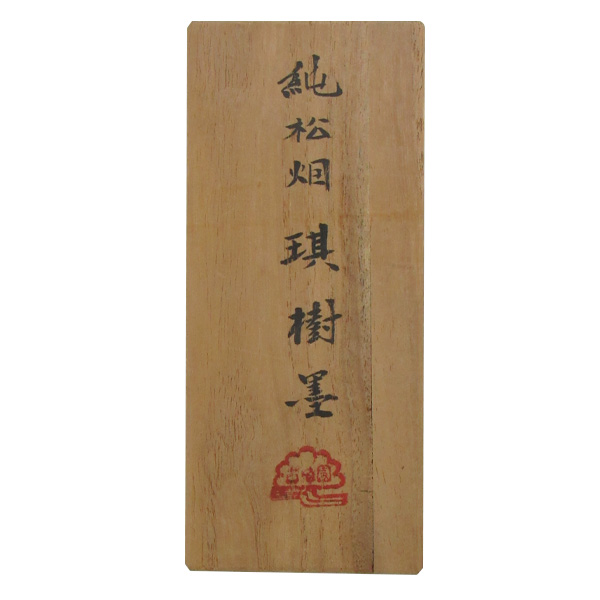 純松烟琪樹墨
古梅園